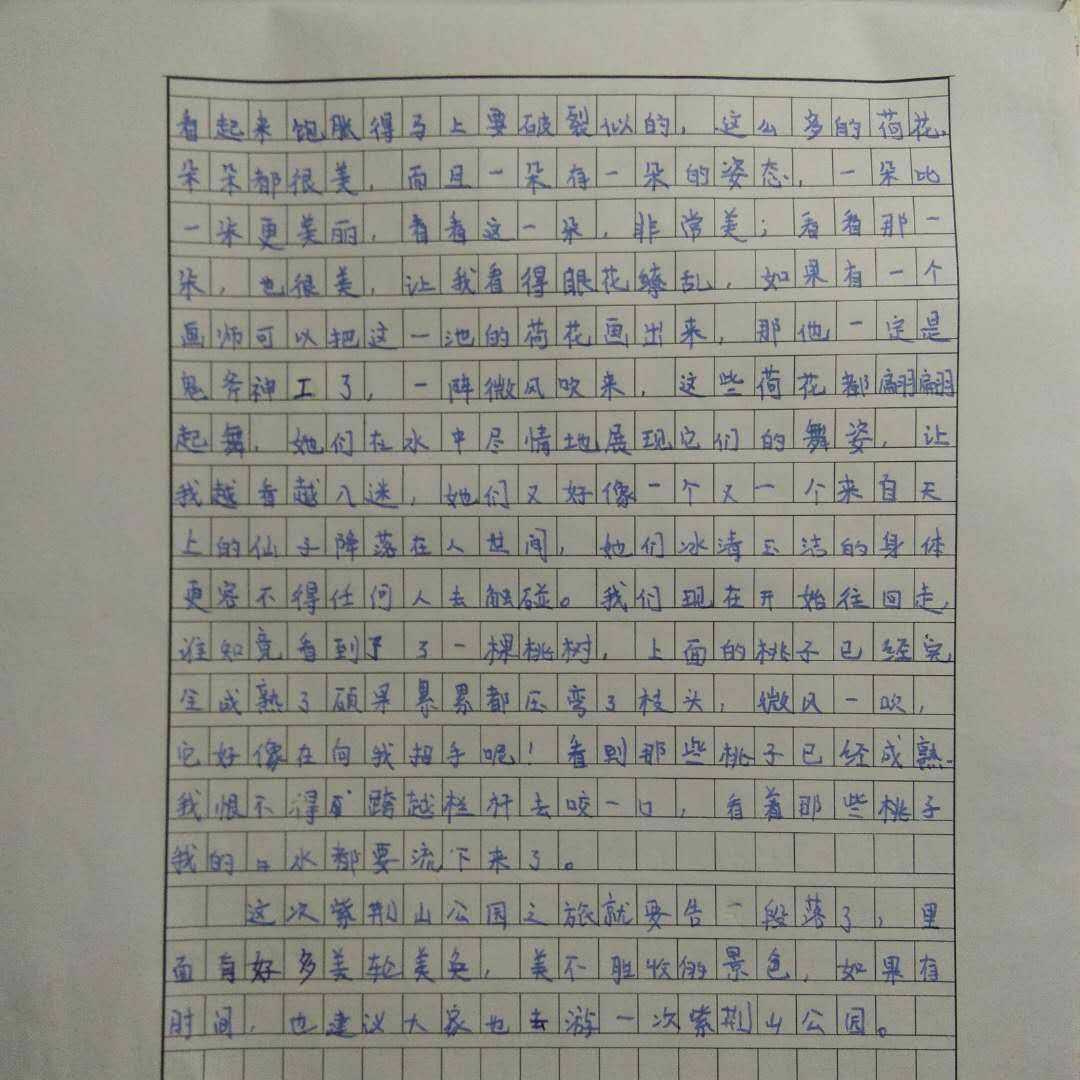 看起来饱胀得马上要破裂似的，这么多的荷花，
朵朵都很美，而且一朵有一朵的姿态，一朵比
一朵更美丽，看看这一朵，非常美；看看那一
朵，也很美，让我看得眼花缭乱，如果有一个
画师可以把这一池的荷花画出来，那他一定是
鬼斧神工了，一阵微风吹来，这些荷花都翩翩
起舞，她们在水中尽情地展现它们的舞姿，让
我越看越入迷，她们又好像一个又一个来自天
上的仙子降落在人世间，她们冰清玉洁的身体
更容不得任何人去触碰。我们现在开始往回走，
谁知竟看到了了一棵桃树，上面的桃子已经完
全成熟了硕果累累都压弯了枝头，微风一吹，
它好像在向我招手呢！看到那些桃子已经成熟，
我恨不得跨越栏杆去咬一口，看着那些桃子
我的口水都要流下来了。
这次紫荆山公园之旅就要告一段落了，里
面有好多美轮美奂，美不胜收的景色，如果有
时间，也建议大家也去游一次紫荆山公园。